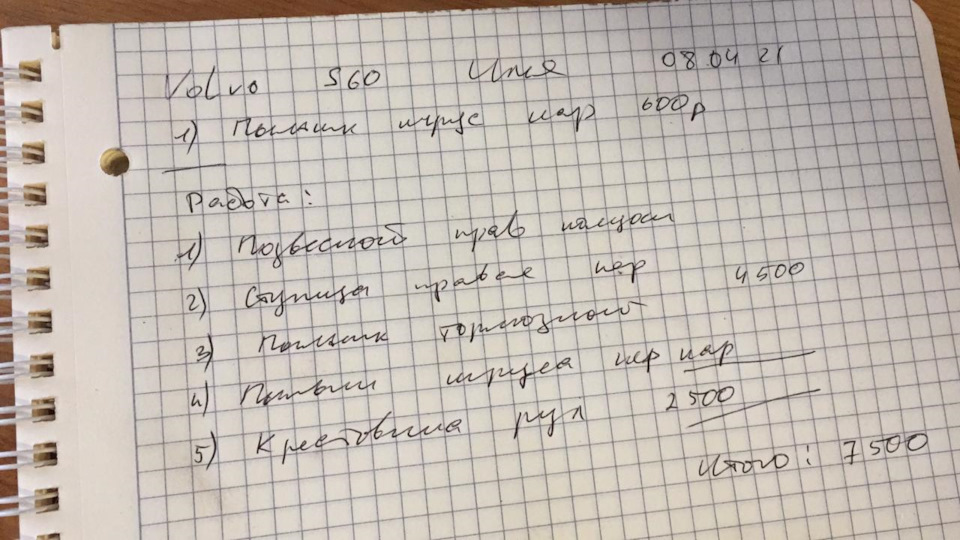 Volvo S60 Илья 08 04 21
1) Пыльник шрус нар 600р
Работа:
1) Подвесной прав
2) Ступица правая пер 4500
3) Пыльник тормозной
4) Пыльник шруса пер нар
5) Крестовина рул 2500
Итого: 7500